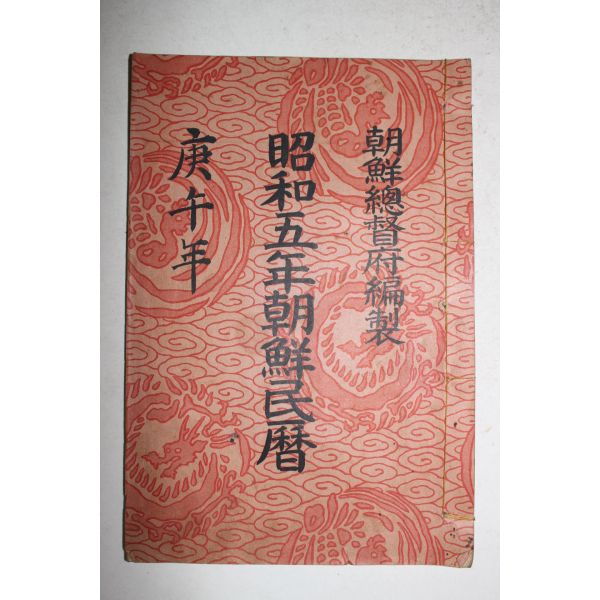 朝鮮總督府編製
昭和五年朝鮮民曆
庚午年